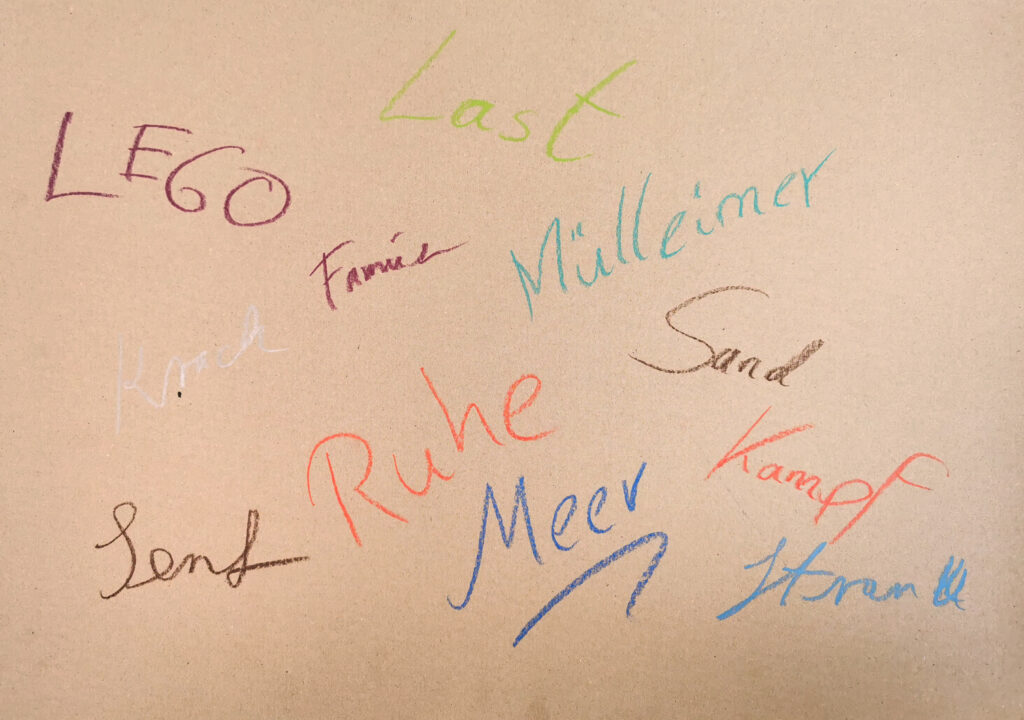 Last
LEGO
Mülleimer
Sand
Krach
Ruhe
Kampf
Meer
Senf